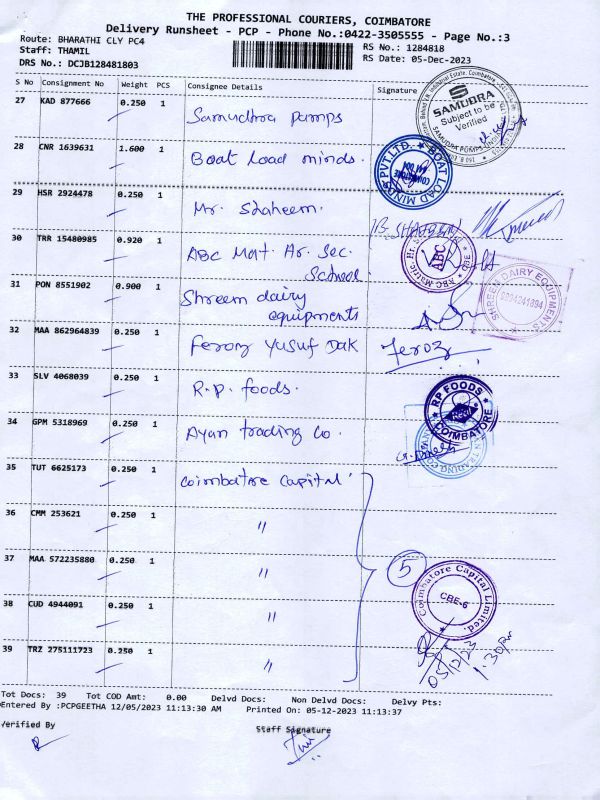 THE PROFESSIONAL COURIERS, COIMBATORE
Delivery Runsheet - PCP - Phone No.:0422-3505555 - Page No.:3
Route: BHARATHI CLY PC4
RS No.: 1284818
Staff: THAMIL
RS Date: 05-Dec-2023
DRS No.: DCJB128481803
S No Consignment No Weight PCS Consignee Details Signature
27 KAD 877666 0.250 1 Samudhra pumps
SAMUDRA
Subject to be
Verified
28 CNR 1639631 1.600 1 Boat load minds.
BOAT LOAD MINDS PVT LTD.
COIMBATORE
641 004
29 HSR 2924478 0.250 1 Mr. Shaheem.
30 TRR 15480985 0.920 1 ABC Mat. Hr. Sec.
School.
ABC
31 PON 8551902 0.900 1 Shreem dairy
equipments
SHREEM DAIRY EQUIPMENTS
9894241894
32 MAA 862964839 0.250 1 Feroz Yusuf Dak
Feroz
33 SLV 4068039 0.250 1 R.P. foods.
RP FOODS
COIMBATORE
34 GPM 5318969 0.250 1 Ayan trading Co.
35 TUT 6625173 0.250 1 Coimbatore Capital
36 CMM 253621 0.250 1 "
37 MAA 572235880 0.250 1 "
5
Coimbatore Capital Limited.
CBE-6
38 CUD 4944091 0.250 1 "
39 TRZ 275111723 0.250 1 "
05/12/23
1.30pm
Tot Docs: 39 Tot COD Amt: 0.00 Delvd Docs: Non Delvd Docs: Delvy Pts:
Entered By :PCPGEETHA 12/05/2023 11:13:30 AM Printed On: 05-12-2023 11:13:37
Verified By
Staff Signature